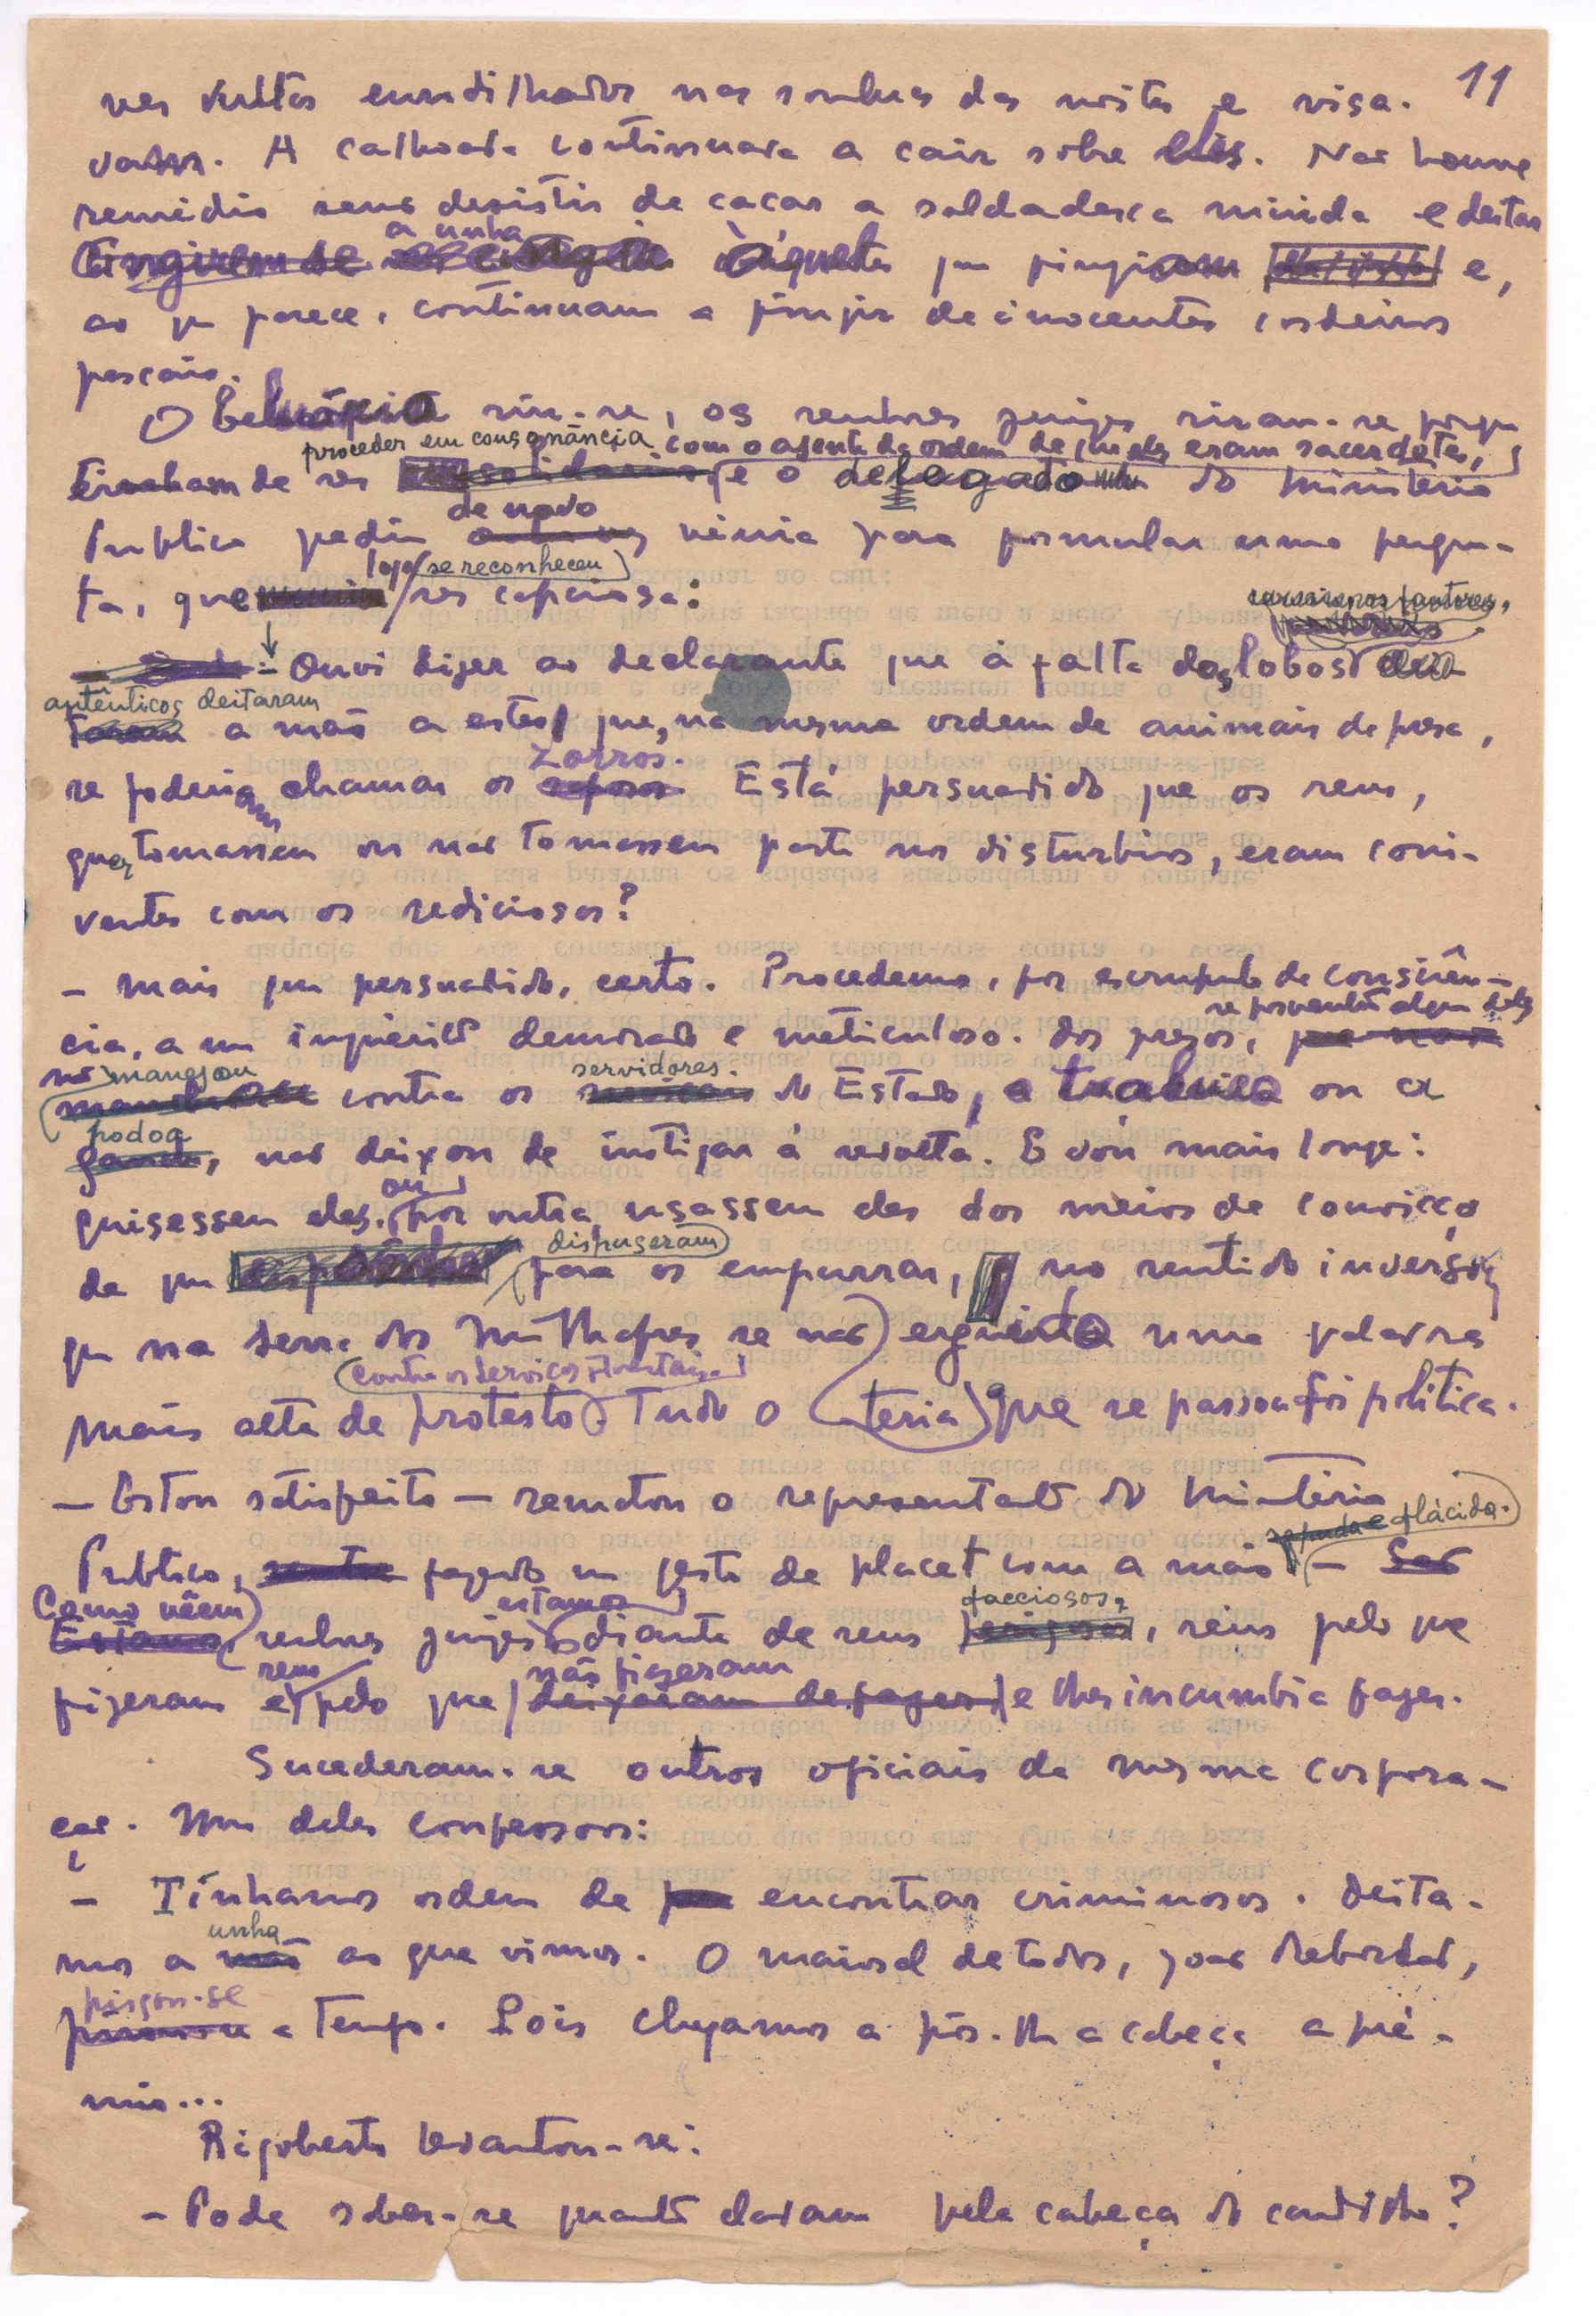 11
nas sombras da noite e visa-
vam. A calhoada continuava a cair sobre eles. Não houve
remédio senão desistir de caçar a soldadesca miúda e deitar
a unha
àqueles que fingiam e,
ao que parece, continuam a fingir de inocentes cordeiros
pascais.
O riu-se, os senhores juízes riram-se porque
proceder em consonância com o agente da ordem de que eles eram sacerdotes,
tinham de e o delegado do Ministério
de novo
Público pediu vénia para formular uma pergun-
logo se reconheceu
ta, que ser capciosa:
- Ouvi dizer ao declarante que à falta dos lobos
autênticos deitaram
a mão a estes que, na mesma ordem de animais de presa,
zorros.
se poderiam chamar os Está persuadido que os réus,
quer tomassem ou não tomassem parte nos distúrbios, eram coni-
ventes com os sediciosos?
- Mais que persuadido, certo. Procedemos, por escrúpulo de consciên-
se porventura algum deles
cia, a um inquérito demorado e meticuloso. Dos presos,
não manejou
servidores
contra os do Estado, a ou a
podoa
, não deixou de instigar à revolta. E vou mais longe:
ou
quisessem eles, por outra, usassem eles dos meios de convicção
dispuseram
de que para os empurrar, no sentido inverso,
que na serra dos Milhafres se não ergueria uma palavra
contra os Serviços Florestais
mais alta de protesto. Tudo o teria que se passou foi política.
- Estou satisfeito - rematou o representante do Ministério
plácida.
Público, fazendo um gesto de placet com a mão -
Como vêem
estamos
facciosos,
senhores juízes diante de réus , réus pelo que
réus
não fizeram
fizeram e pelo que e lhes incumbia fazer.
Sucederam-se outros oficiais da mesma corpora-
ção. Um deles confessou:
- Tínhamos ordem de encontrar criminosos. Deitá-
unha
mos a ao que vimos. O maioral de todos, João Rebordão,
pisgou-se
a tempo. Pois chegámos a pôr-lhe a cabeça a pré-
mio...
Rigoberto levantou-se:
- Pode saber-se quanto davam pela cabeça do caudilho?